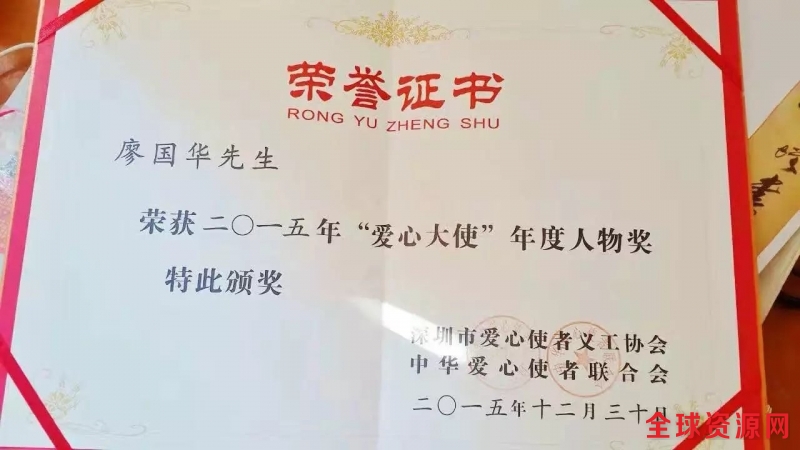 荣誉证书
RONG YU ZHENG SHU
廖国华先生
荣获二〇一五年“爱心大使”年度人物奖
特此颁奖
深圳市爱心使者义工协会
中华爱心使者联合会
二〇一五年十二月三十日
全球资源网